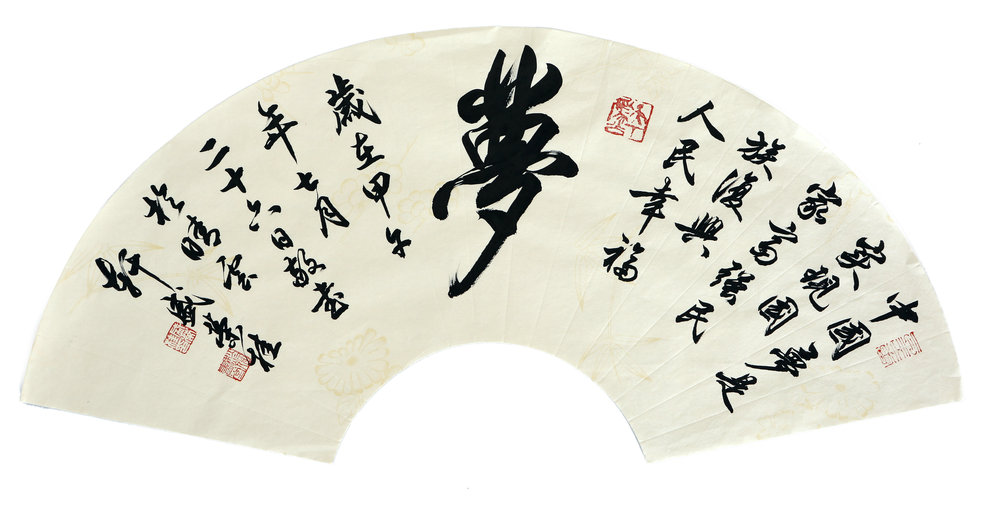 中國夢是
實現國
家富强民
族復興
人民幸福
夢
歲在甲午
年七月
二十六日敬書
於晴
軒戴